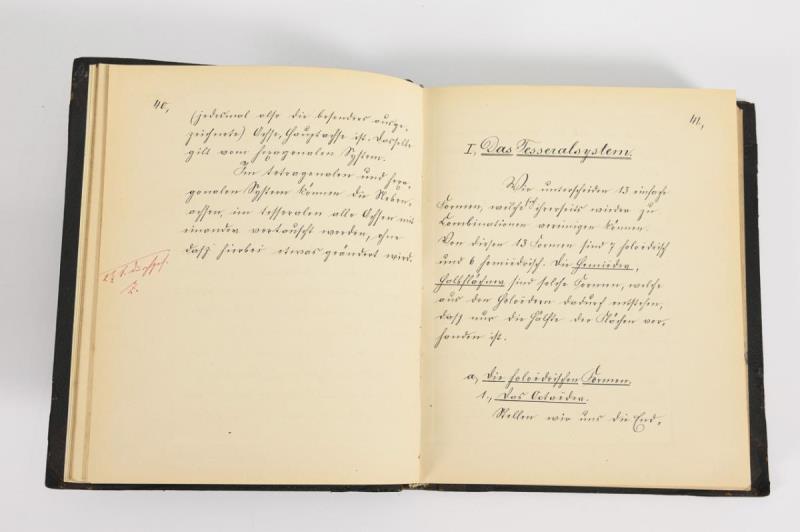 40,
(jedesmal also die besonders ausge-
zeichnete) Achse, Hauptachse ist. Dasselbe
gilt vom hexagonalen System.
Im tetragonalen und hexa-
gonalen System können die Neben-
achsen, im tesseralen alle Achsen mit
einander vertauscht werden, ohne
daß hierbei etwas geändert wird.
41,
I, Das Tesseralsystem.
Wir unterscheiden 13 einfache
Formen, welche ihrerseits wieder zu
Combinationen vereinigen können.
Von diesen 13 Formen sind 7 holoëdrisch
und 6 hemiëdrisch. Die Hemiëder,
Halbflächner sind solche Formen, welche
aus den Holoëdern dadurch entstehen,
daß nur die Hälfte der Flächen vor-
handen ist.
a, Die holoëdrischen Formen.
1., Das Octaëder.
Stellen wir uns die End-